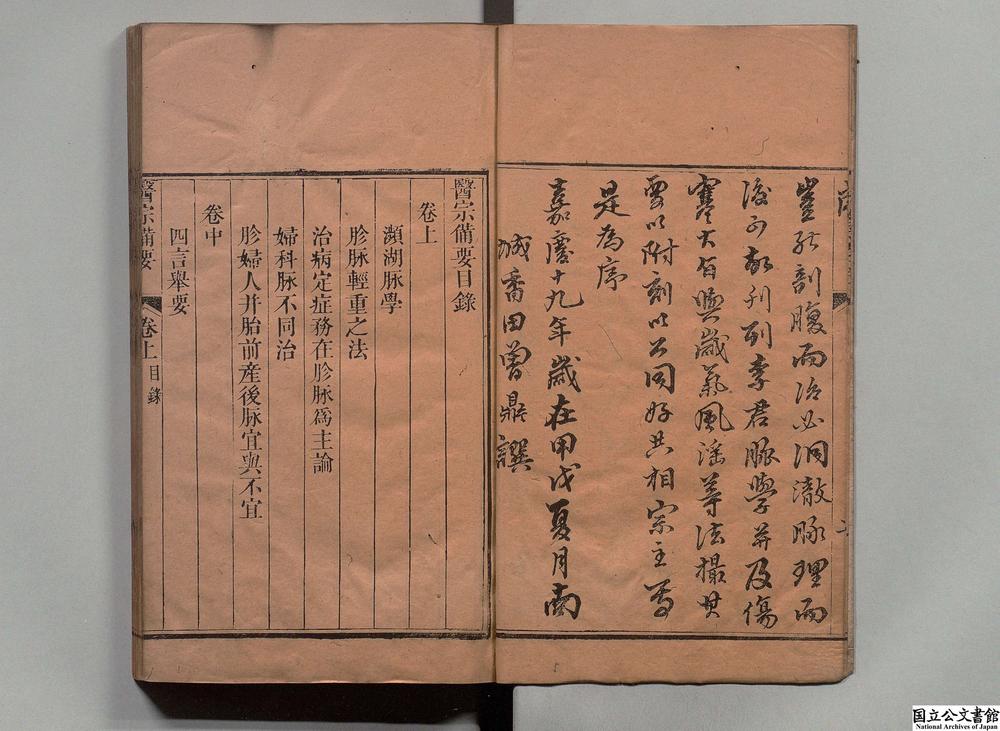 豈能剖腹而治必洞澈脉理而
後可故刊列李君脈學并及傷
寒大旨與歲氣風淫等法撮其
要以附刻以公同好共相宗主焉
是為序
嘉慶十九年歲在甲戌夏月南
城香田曾鼎譔
醫宗備要目錄
卷上
瀕湖脉學
胗脉輕重之法
治病定症務在胗脉爲主論
婦科脉不同治
胗婦人并胎前産後脉宜與不宜
卷中
四言舉要
醫宗備要
卷上目錄
国立公文書館
National Archives of Japan